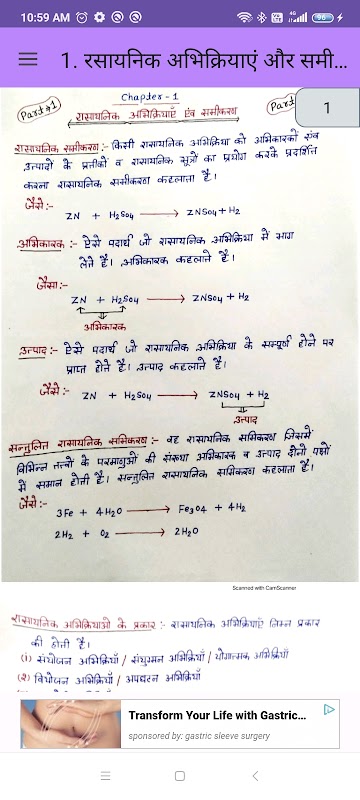 10:59 AM
4G
96
1. रसायनिक अभिक्रियाएं और समी...
1
Part-1
Chapter-1
Part
रासायनिक अभिक्रियाएँ एंव समीकरण
रासायनिक समीकरण:- किसी रासायनिक अभिक्रिया को अभिकारकों एंव
उत्पादों के प्रतीकों व रासायनिक सूत्रों का प्रयोग करके प्रदर्शित
करना रासायनिक समीकरण कहलाता है।
जैसे:-
ZN + H2SO4 → ZNSO4 + H2
अभिकारक:- ऐसे पदार्थ जो रासायनिक अभिक्रिया में भाग
लेते है। अभिकारक कहलाते है।
जैसा:-
ZN + H2SO4 → ZNSO4 + H2
अभिकारक
उत्पाद:- ऐसे पदार्थ जो रासायनिक अभिक्रिया के सम्पूर्ण होने पर
प्राप्त होते है। उत्पाद कहलाते है।
जैसे:- ZN + H2SO4 → ZNSO4 + H2
उत्पाद
सन्तुलित रासायनिक समिकरण:- वह रासायनिक समिकरण जिसमें
विभिन्न तत्वों के परमाणुओं की संख्या अभिकारक व उत्पाद दोनों पक्षों
में समान होती है। सन्तुलित रासायनिक समिकरण कहलाता है।
जैसे:-
3Fe + 4H2O → Fe3O4 + 4H2
2H2 + O2 → 2H2O
Scanned with CamScanner
रासायनिक अभिक्रियाओं के प्रकार:- रासायनिक अभिक्रियाएं निम्न प्रकार
की होती है।
(1) संयोजन अभिक्रियाँ / संयुग्मन अभिक्रियाँ / योगात्मक अभिक्रियाँ
(2) वियोजन अभिक्रियाँ / अपघटन अभिक्रियाँ
Transform Your Life with Gastric...
sponsored by: gastric sleeve surgery